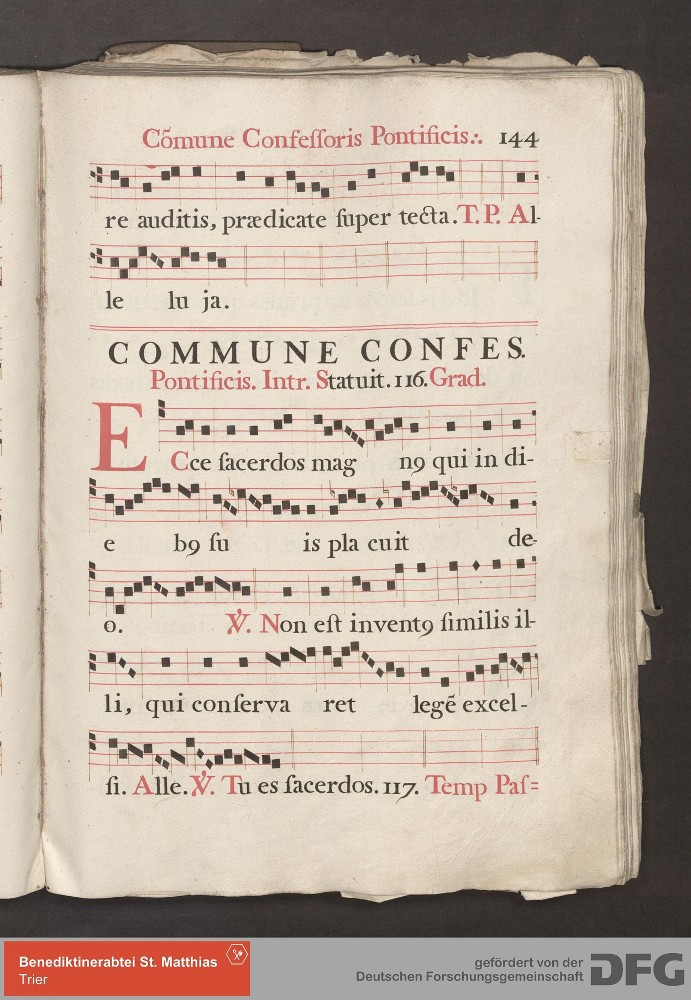 Cõmune Confeſſoris Pontificis.·. 144
re auditis, prædicate ſuper tecta. T. P. Al-
le lu ja.
COMMUNE CONFES.
Pontificis. Intr. Statuit. 116. Grad.
ECce ſacerdos mag nꝯ qui in di-
e bꝯ ſu is pla cuit de-
o. ℣. Non eſt inventꝯ ſimilis il-
li, qui conſerva ret legẽ excel-
ſi. Alle. ℣. Tu es ſacerdos. 117. Temp Paſ=
Benediktinerabtei St. Matthias
Trier
gefördert von der
Deutschen Forschungsgemeinschaft DFG